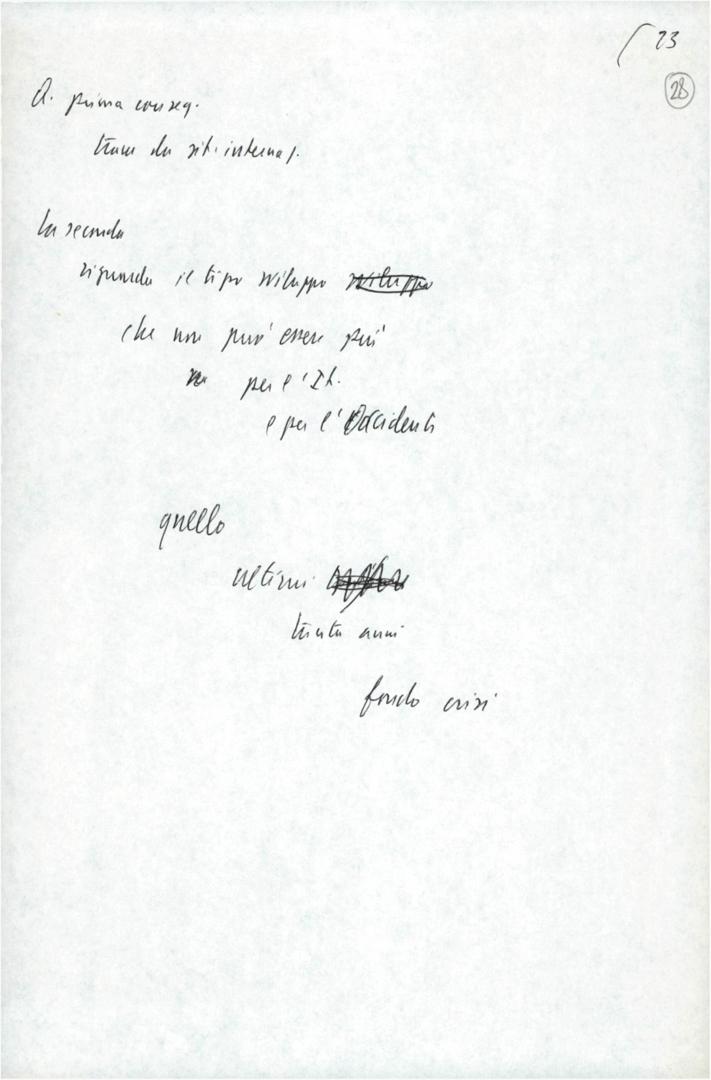 23
28
Q. prima conseg.
trarre da sit. internaz.
La seconda
riguarda il tipo sviluppo sviluppo
che non può essere più
per l'It.
e per l'Occidente
quello
ultimi
trenta anni
fondo crisi